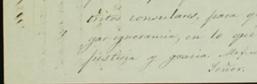 Autos consulares, para q
gar ignorancia, en lo que
justicia y gracia.
Señor.